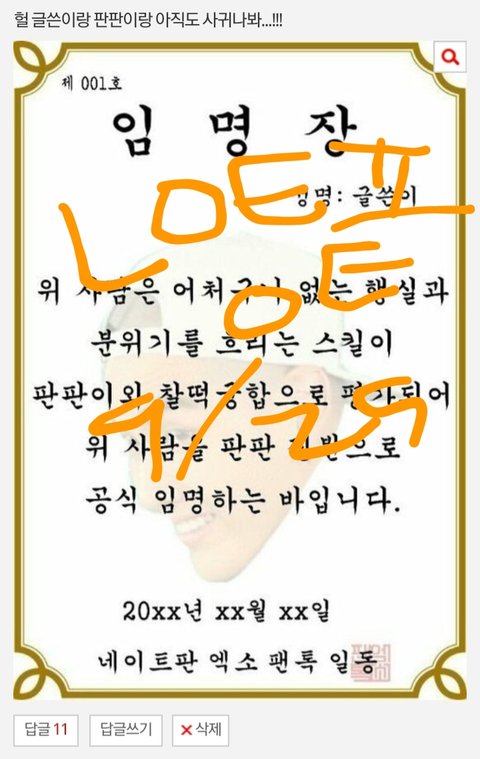 헐 글쓴이랑 판판이랑 아직도 사귀나봐...!!!
제 001호
임 명 장
성명: 글쓴이
위 사람은 어처구니 없는 행실과
분위기를 흐리는 스킬이
판판이와 찰떡궁합으로 평가되어
위 사람을 판판 전반으로
공식 임명하는 바입니다.
9/29
20xx년 xx월 xx일
네이트판 엑소 팬톡 일동
답글 11 답글쓰기 삭제